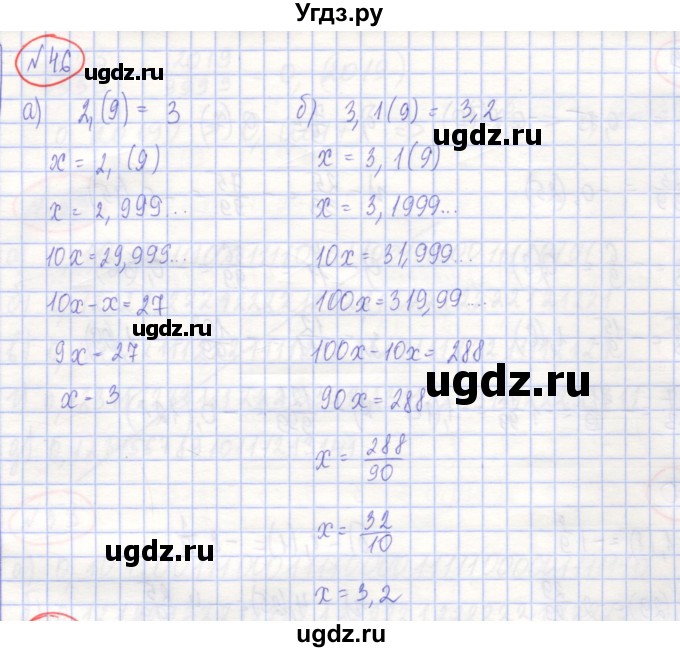 Угдз.ру
№46
ugdz.ru
а) 2,(9) = 3
x = 2,(9)
x = 2,999...
10x = 29,999...
10x - x = 27
ugdz.ru
9x - 27
x - 3
б) 3,1(9) = 3,2
ugdz.ru
x = 3,1(9)
x = 3,1999...
10x = 31,999...
100x = 319,99...
100x - 10x = 288
ugdz.ru
90x = 288
x = 288/90
x = 32/10
ugdz.ru
x = 3,2
ugdz.ru